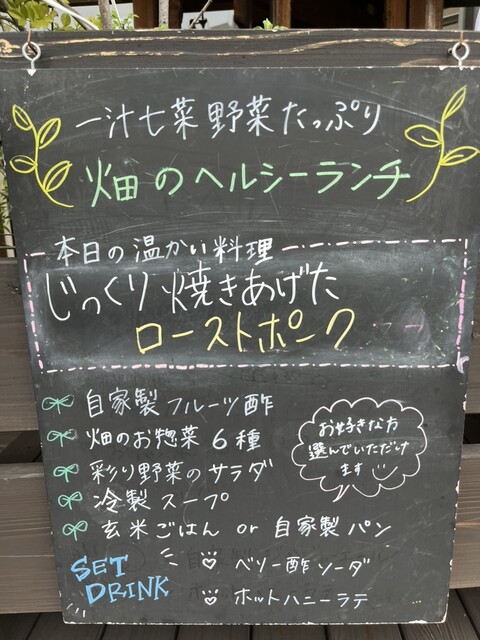 一汁七菜野菜たっぷり
畑のヘルシーランチ
本日の温かい料理
じっくり焼きあげた
ローストポーク
自家製フルーツ酢
畑のお惣菜6種
彩り野菜のサラダ
冷製スープ
玄米ごはん or 自家製パン
お好きな方
選んでいただけ
ます
SET
DRINK
ベリー酢ソーダ
ホットハニーラテ